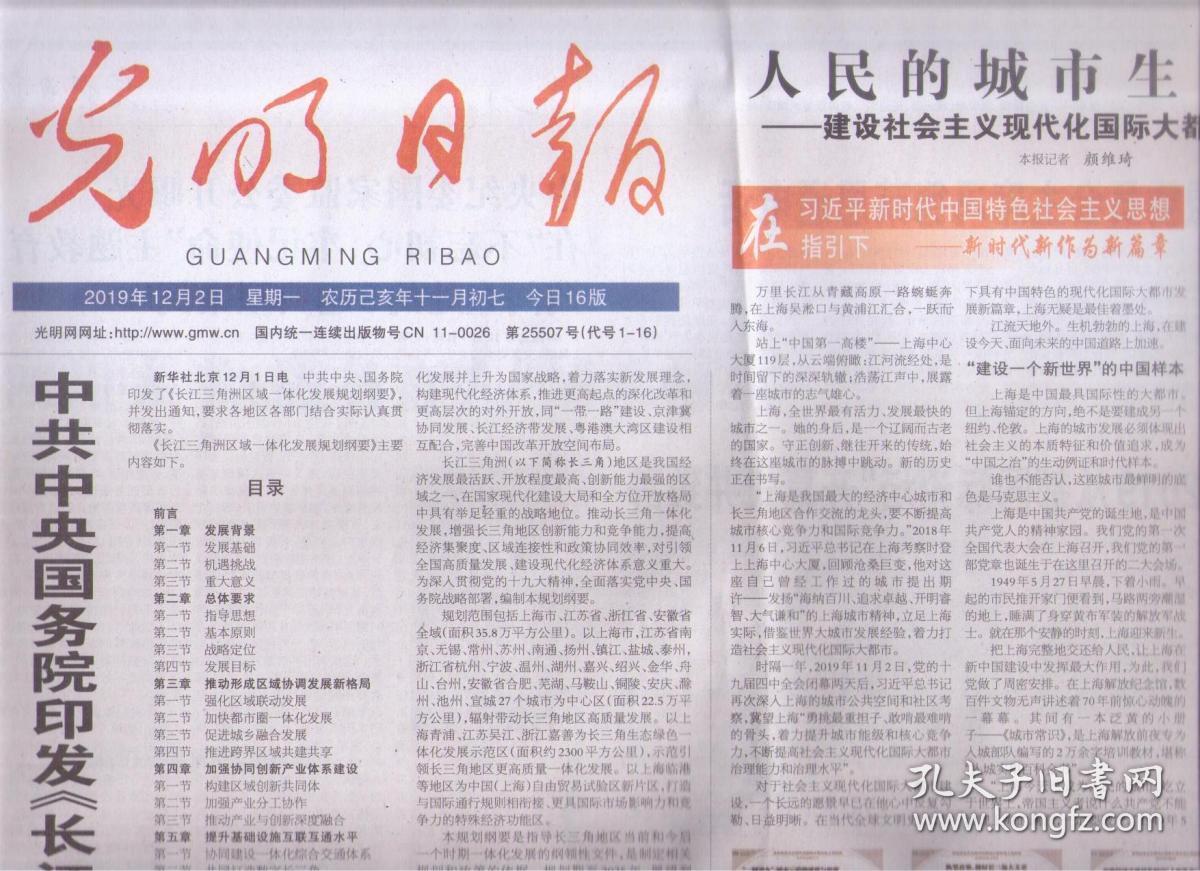 光明日报
GUANGMING RIBAO
2019年12月2日 星期一 农历己亥年十一月初七 今日16版
光明网网址:http://www.gmw.cn 国内统一连续出版物号CN 11-0026 第25507号(代号1-16)
中共中央国务院印发《长
新华社北京12月1日电 中共中央、国务院
印发了《长江三角洲区域一体化发展规划纲要》,
并发出通知,要求各地区各部门结合实际认真贯
彻落实。
《长江三角洲区域一体化发展规划纲要》主要
内容如下。
目录
前言
第一章 发展背景
第一节 发展基础
第二节 机遇挑战
第三节 重大意义
第二章 总体要求
第一节 指导思想
第二节 基本原则
第三节 战略定位
第四节 发展目标
第三章 推动形成区域协调发展新格局
第一节 强化区域联动发展
第二节 加快都市圈一体化发展
第三节 促进城乡融合发展
第四节 推进跨界区域共建共享
第四章 加强协同创新产业体系建设
第一节 构建区域创新共同体
第二节 加强产业分工协作
第三节 推动产业与创新深度融合
第五章 提升基础设施互联互通水平
第一节 协同建设一体化综合交通体系
化发展并上升为国家战略,着力落实新发展理念,
构建现代化经济体系,推进更高起点的深化改革和
更高层次的对外开放,同“一带一路”建设、京津冀
协同发展、长江经济带发展、粤港澳大湾区建设相
互配合,完善中国改革开放空间布局。
长江三角洲(以下简称长三角)地区是我国经
济发展最活跃、开放程度最高、创新能力最强的区
域之一,在国家现代化建设大局和全方位开放格局
中具有举足轻重的战略地位。推动长三角一体化
发展,增强长三角地区创新能力和竞争能力,提高
经济集聚度、区域连接性和政策协同效率,对引领
全国高质量发展、建设现代化经济体系意义重大。
为深入贯彻党的十九大精神,全面落实党中央、国
务院战略部署,编制本规划纲要。
规划范围包括上海市、江苏省、浙江省、安徽省
全域(面积35.8万平方公里)。以上海市,江苏省南
京、无锡、常州、苏州、南通、扬州、镇江、盐城、泰州,
浙江省杭州、宁波、温州、湖州、嘉兴、绍兴、金华、舟
山、台州,安徽省合肥、芜湖、马鞍山、铜陵、安庆、滁
州、池州、宣城27个城市为中心区(面积22.5万平
方公里),辐射带动长三角地区高质量发展。以上
海青浦、江苏吴江、浙江嘉善为长三角生态绿色一
体化发展示范区(面积约2300平方公里),示范引
领长三角地区更高质量一体化发展。以上海临港
等地区为中国(上海)自由贸易试验区新片区,打造
与国际通行规则相衔接、更具国际市场影响力和竞
争力的特殊经济功能区。
本规划纲要是指导长三角地区当前和今后
一个时期一体化发展的纲领性文件,是制定相关
人民的城市生
——建设社会主义现代化国际大都
本报记者 颜维琦
在习近平新时代中国特色社会主义思想
指引下 ——新时代新作为新篇章
万里长江从青藏高原一路蜿蜒奔
腾,在上海吴淞口与黄浦江汇合,一跃而
入东海。
站上“中国第一高楼”——上海中心
大厦119层,从云端俯瞰:江河流经处,是
时间留下的深深轨辙;浩荡江声中,展露
着一座城市的志气雄心。
上海,全世界最有活力、发展最快的
城市之一。她的身后,是一个辽阔而古老
的国家。守正创新、继往开来的传统,始
终在这座城市的脉搏中跳动。新的历史
正在书写。
“上海是我国最大的经济中心城市和
长三角地区合作交流的龙头,要不断提高
城市核心竞争力和国际竞争力。”2018年
11月6日,习近平总书记在上海考察时登
上上海中心大厦,回顾沧桑巨变,他对这
座自己曾经工作过的城市提出期
许——发扬“海纳百川、追求卓越、开明睿
智、大气谦和”的上海城市精神,立足上海
实际,借鉴世界大城市发展经验,着力打
造社会主义现代化国际大都市。
时隔一年,2019年11月2日,党的十
九届四中全会闭幕两天后,习近平总书记
再次深入上海的城市公共空间和社区考
察,冀望上海“勇挑最重担子、敢啃最难啃
的骨头,着力提升城市能级和核心竞争
力,不断提高社会主义现代化国际大都市
治理能力和治理水平”。
对于社会主义现代化国际大都市建
设,一个长远的愿景早已在他心中反复勾
勒、日益明晰。在当代全球文明
下具有中国特色的现代化国际大都市发
展新篇章,上海无疑是最佳着墨处。
江流天地外。生机勃勃的上海,在建
设今天、面向未来的中国道路上加速。
“建设一个新世界”的中国样本
上海是中国最具国际性的大都市。
但上海锚定的方向,绝不是要建成另一个
纽约、伦敦。上海的城市发展必须体现出
社会主义的本质特征和价值追求,成为
“中国之治”的生动例证和时代样本。
谁也不能否认,这座城市最鲜明的底
色是马克思主义。
上海是中国共产党的诞生地,是中国
共产党人的精神家园。我们党的第一次
全国代表大会在上海召开,我们党的第一
部党章也诞生于在这里召开的二大会场。
1949年5月27日早晨,下着小雨。早
起的市民推开家门便看到,马路两旁潮湿
的地上,睡满了身穿黄布军装的解放军战
士。就在那个安静的时刻,上海迎来新生。
把上海完整地交还给人民,让上海在
新中国建设中发挥最大作用,为此,我们
党做了周密安排。在上海解放纪念馆,数
百件文物无声讲述着70年前惊心动魄的
一幕幕。其间有一本泛黄的小册
子——《城市常识》,是上海解放前夜专为
入城部队编写的2万余字培训教材,堪称
孔夫子旧书网
www.kongfz.com